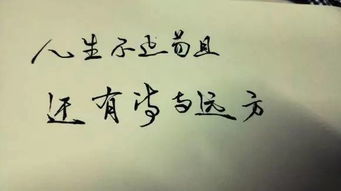 人生不止苟且
还有诗与远方